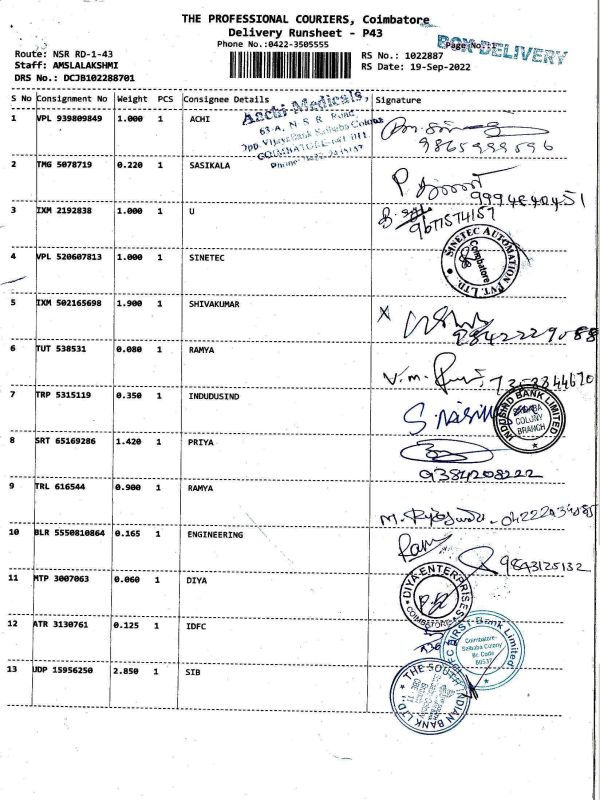 THE PROFESSIONAL COURIERS, Coimbatore
Delivery Runsheet - P43
Phone No.:0422-3505555
BOX DELIVERY
Page No.:1
Route: NSR RD-1-43
Staff: AMSLALAKSHMI
DRS No.: DCJB102288701
RS No.: 1022887
RS Date: 19-Sep-2022
S No Consignment No Weight PCS Consignee Details Signature
Aachi Medicals,
63-A, N S R Road,
Opp. Vijaya Bank Saibaba Colony
COIMBATORE-641 011.
1 VPL 939809849 1.000 1 ACHI
2 TMG 5078719 0.220 1 SASIKALA
3 IXM 2192838 1.000 1 U
9677574157
4 VPL 520607813 1.000 1 SINETEC
SINETEC AUTOMATION PVT. LTD.
Coimbatore
5 IXM 502165698 1.900 1 SHIVAKUMAR
X
9842229088
6 TUT 538531 0.080 1 RAMYA
V.m.
7358344670
7 TRP 5315119 0.350 1 INDUDUSIND
INDUSIND BANK LIMITED
SAIBABA
COLONY
BRANCH
8 SRT 65169286 1.420 1 PRIYA
9384208222
9 TRL 616544 0.900 1 RAMYA
10 BLR 5550810864 0.165 1 ENGINEERING
Ram
9843125132
11 MTP 3007063 0.060 1 DIYA
DIYA ENTERPRISES
COIMBATORE
12 ATR 3130761 0.125 1 IDFC
IDFC FIRST Bank Limited
Coimbatore-
Saibaba Colony
Br. Code
13 UDP 15956250 2.850 1 SIB
THE SOUTH INDIAN BANK LTD.